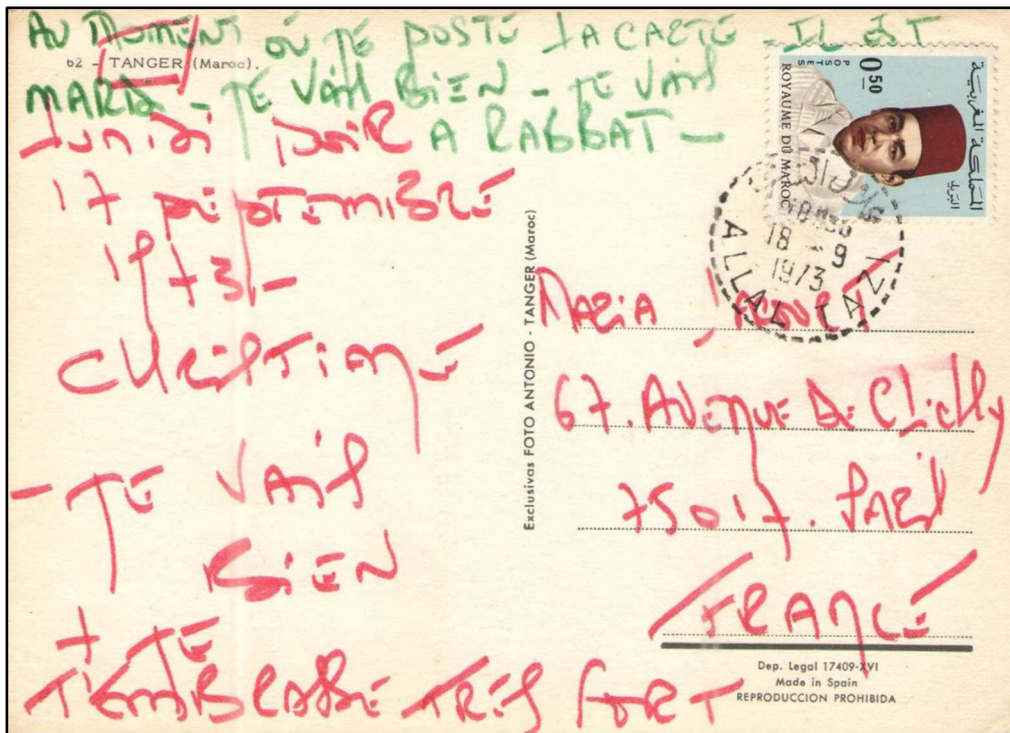 AU MOMENT OÙ JE POSTE LA CARTE IL EST
62 - TANGER (Maroc).
MARDI - JE VAIS BIEN - JE VAIS
A RABBAT -
LUNDI SOIR
17 SEPTEMBRE
1973 -
CHRISTIANE
- JE VAIS
BIEN
+ JE
T'EMBRASSE TRÈS FORT
Exclusivas FOTO ANTONIO - TANGER (Maroc)
0,50
POSTES
ROYAUME DU MAROC
المملكة المغربية
البريد
18 - 9
1973
ALLAL TAZI
MARIA
67. AVENUE DE CLICHY
75017. PARIS
FRANCE
Dep. Legal 17409-XVI
Made in Spain
REPRODUCCION PROHIBIDA